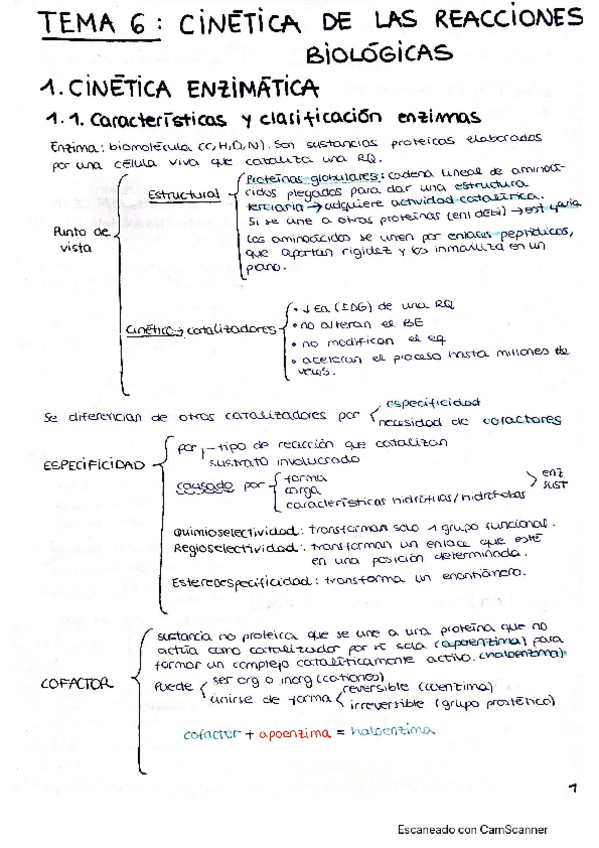 TEMA 6: CINÉTICA DE LAS REACCIONES
BIOLÓGICAS
1. CINÉTICA ENZIMÁTICA
1.1. Características y clasificación enzimas
Enzima: biomolécula (C,H,O,N). Son sustancias proteicas elaboradas
por una célula viva que cataliza una RQ.
Punto de vista
Estructural
Proteínas globulares: cadena lineal de aminoá-
cidos plegados para dar una estructura
terciaria → adquiere actividad catalítica.
Si se une a otras proteínas (enl débil) → est 4aria
Los aminoácidos se unen por enlaces peptídicos,
que aportan rigidez y los inmoviliza en un
plano.
Cinético → catalizadores
• ↓ Ea (ΔG) de una RQ
• no alteran el
• no modifican el eq
• aceleran el proceso hasta millones de
veces.
Se diferencian de otros catalizadores por
especificidad
necesidad de cofactores
ESPECIFICIDAD
por - tipo de reacción que catalizan
sustrato involucrado
causada por
forma
carga
características hidrófilas/hidrófobas
enz
sust
Quimioselectividad: transforman solo 1 grupo funcional.
Regioselectividad: transforman un enlace que esté
en una posición determinada.
Estereoespecificidad: transforma un enantiómero.
COFACTOR
sustancia no proteica que se une a una proteína que no
actúa como catalizador por sí sola (apoenzima) para
formar un complejo catalíticamente activo. (haloenzima).
Puede
ser org o inorg (cationes)
unirse de forma
reversible (coenzima)
irreversible (grupo prostético)
cofactor + apoenzima = haloenzima
1
Escaneado con CamScanner